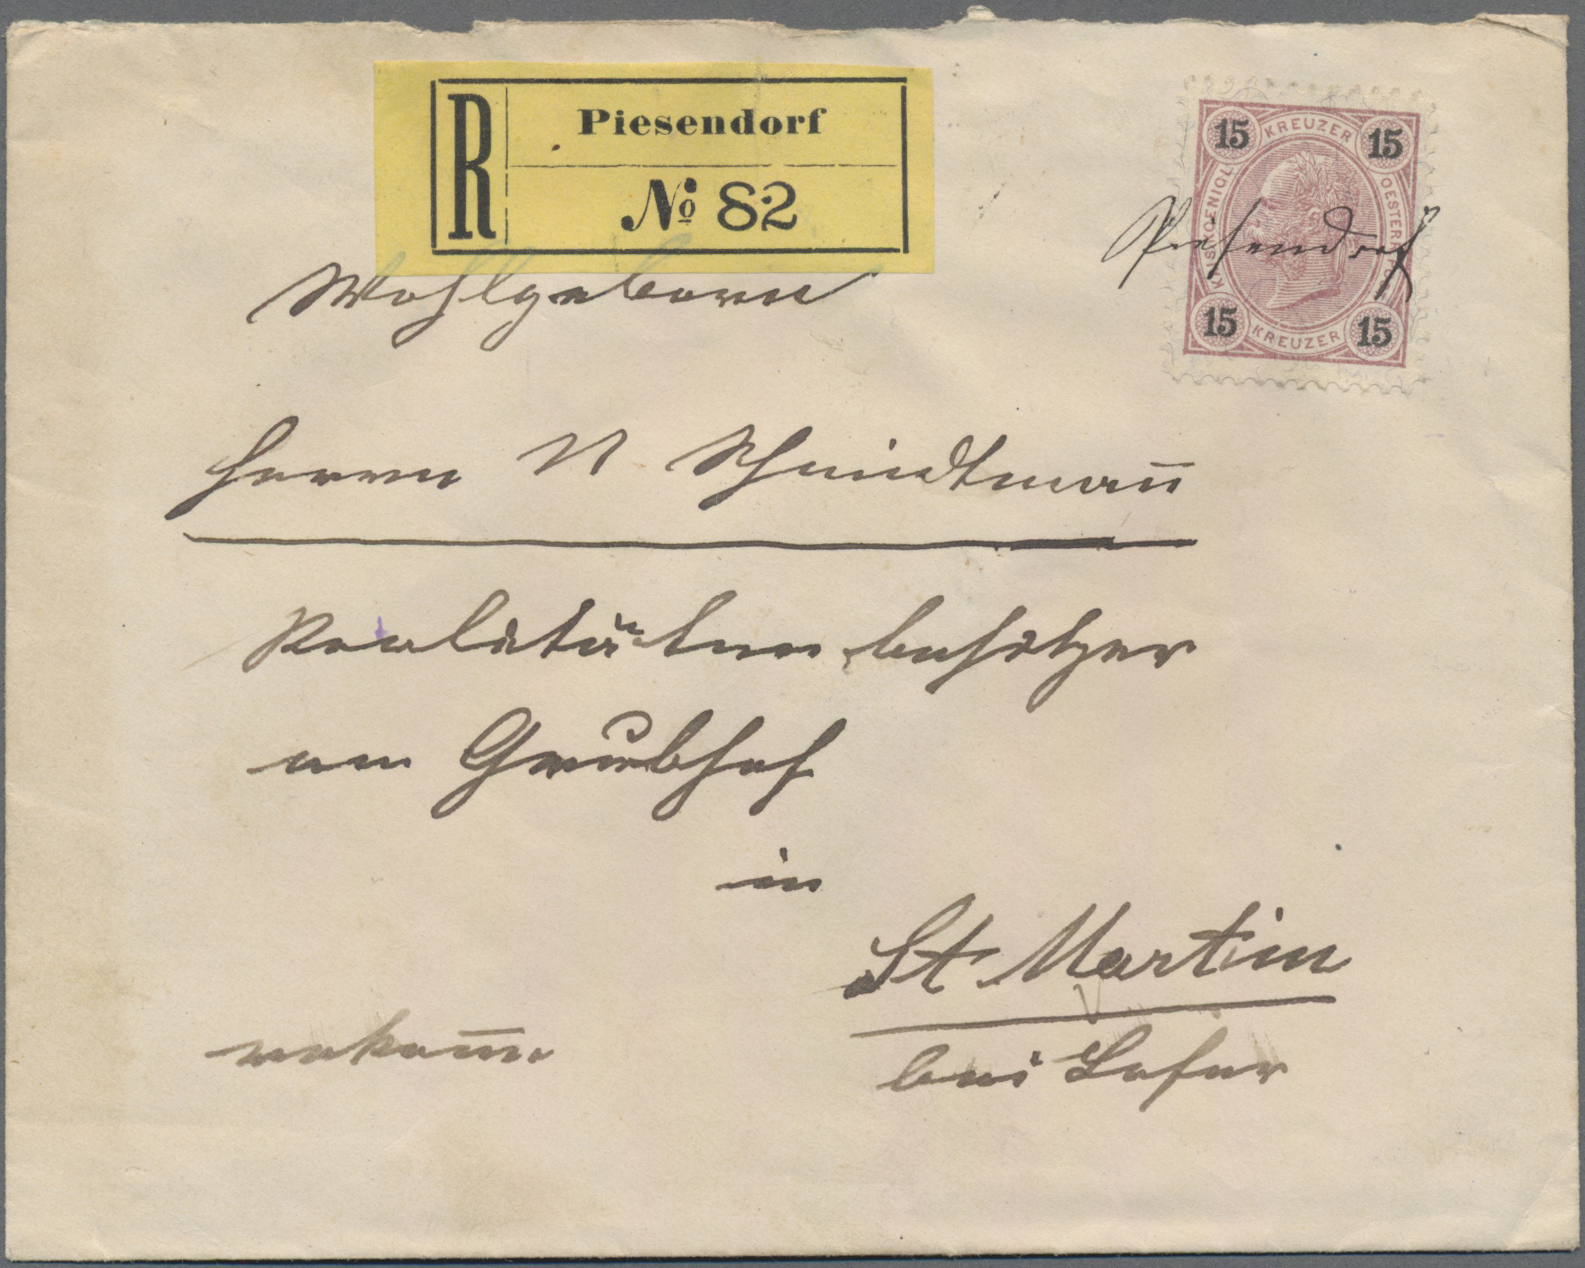 R
Piesendorf
No 82
15 KREUZER 15
KAIS. KOENIGL. OESTERR.
Piesendorf
15 KREUZER 15
Wohlgeboren
Herrn N Schmidtmann̄
Realitätenbesitzer
am Grubhof
in
St. Martin
bei Lofer
rekom̄.